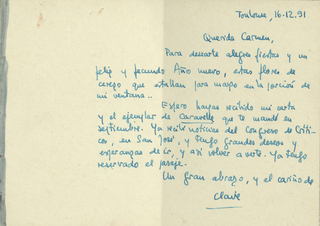 Toulouse, 16-12-91
Querida Carmen,
Para desearte alegres fiestas y un
feliz y fecundo Año nuevo, estas flores de
cerezo que estallan para marzo en la porción de
mi ventana...
Espero hayas recibido mi carta
y el ejemplar de Caravelle que te mandé en
septiembre. Ya recibí noticias del Congreso de Críti-
cos, en San José, y tengo grandes deseos y
esperanzas de ir, y así volver a verte. Ya tengo
reservado el pasaje.
Un gran abrazo, y el cariño de